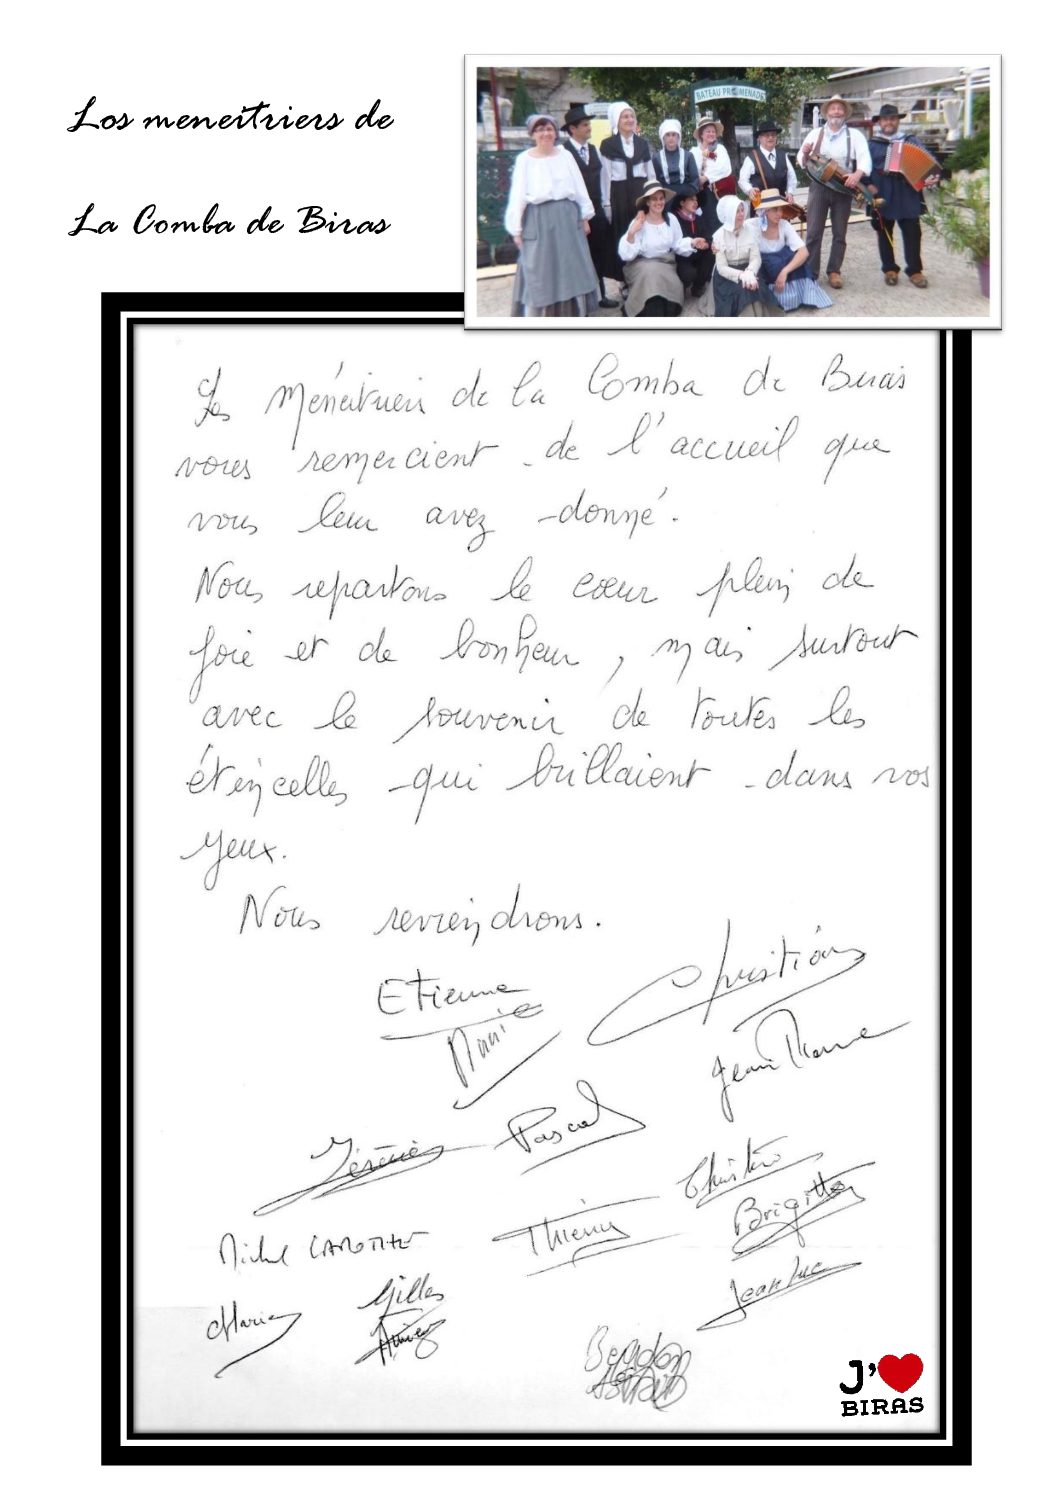 Los meneitriers de
La Comba de Biras
BATEAU PROMENADE
Les Ménéitriers de la Comba de Biras
vous remercient de l'accueil que
vous leur avez donné.
Nous repartons le cœur plein de
joie et de bonheur, mais surtout
avec le souvenir de toutes les
étincelles qui brillaient dans vos
yeux.
Nous reviendrons.
Etienne
Christian
Marie
Jean Pierre
Pascal
Jérémie
Christian
Brigitte
Thierry
Michel
Jean Luc
Gilles
Marie
J'❤
BIRAS